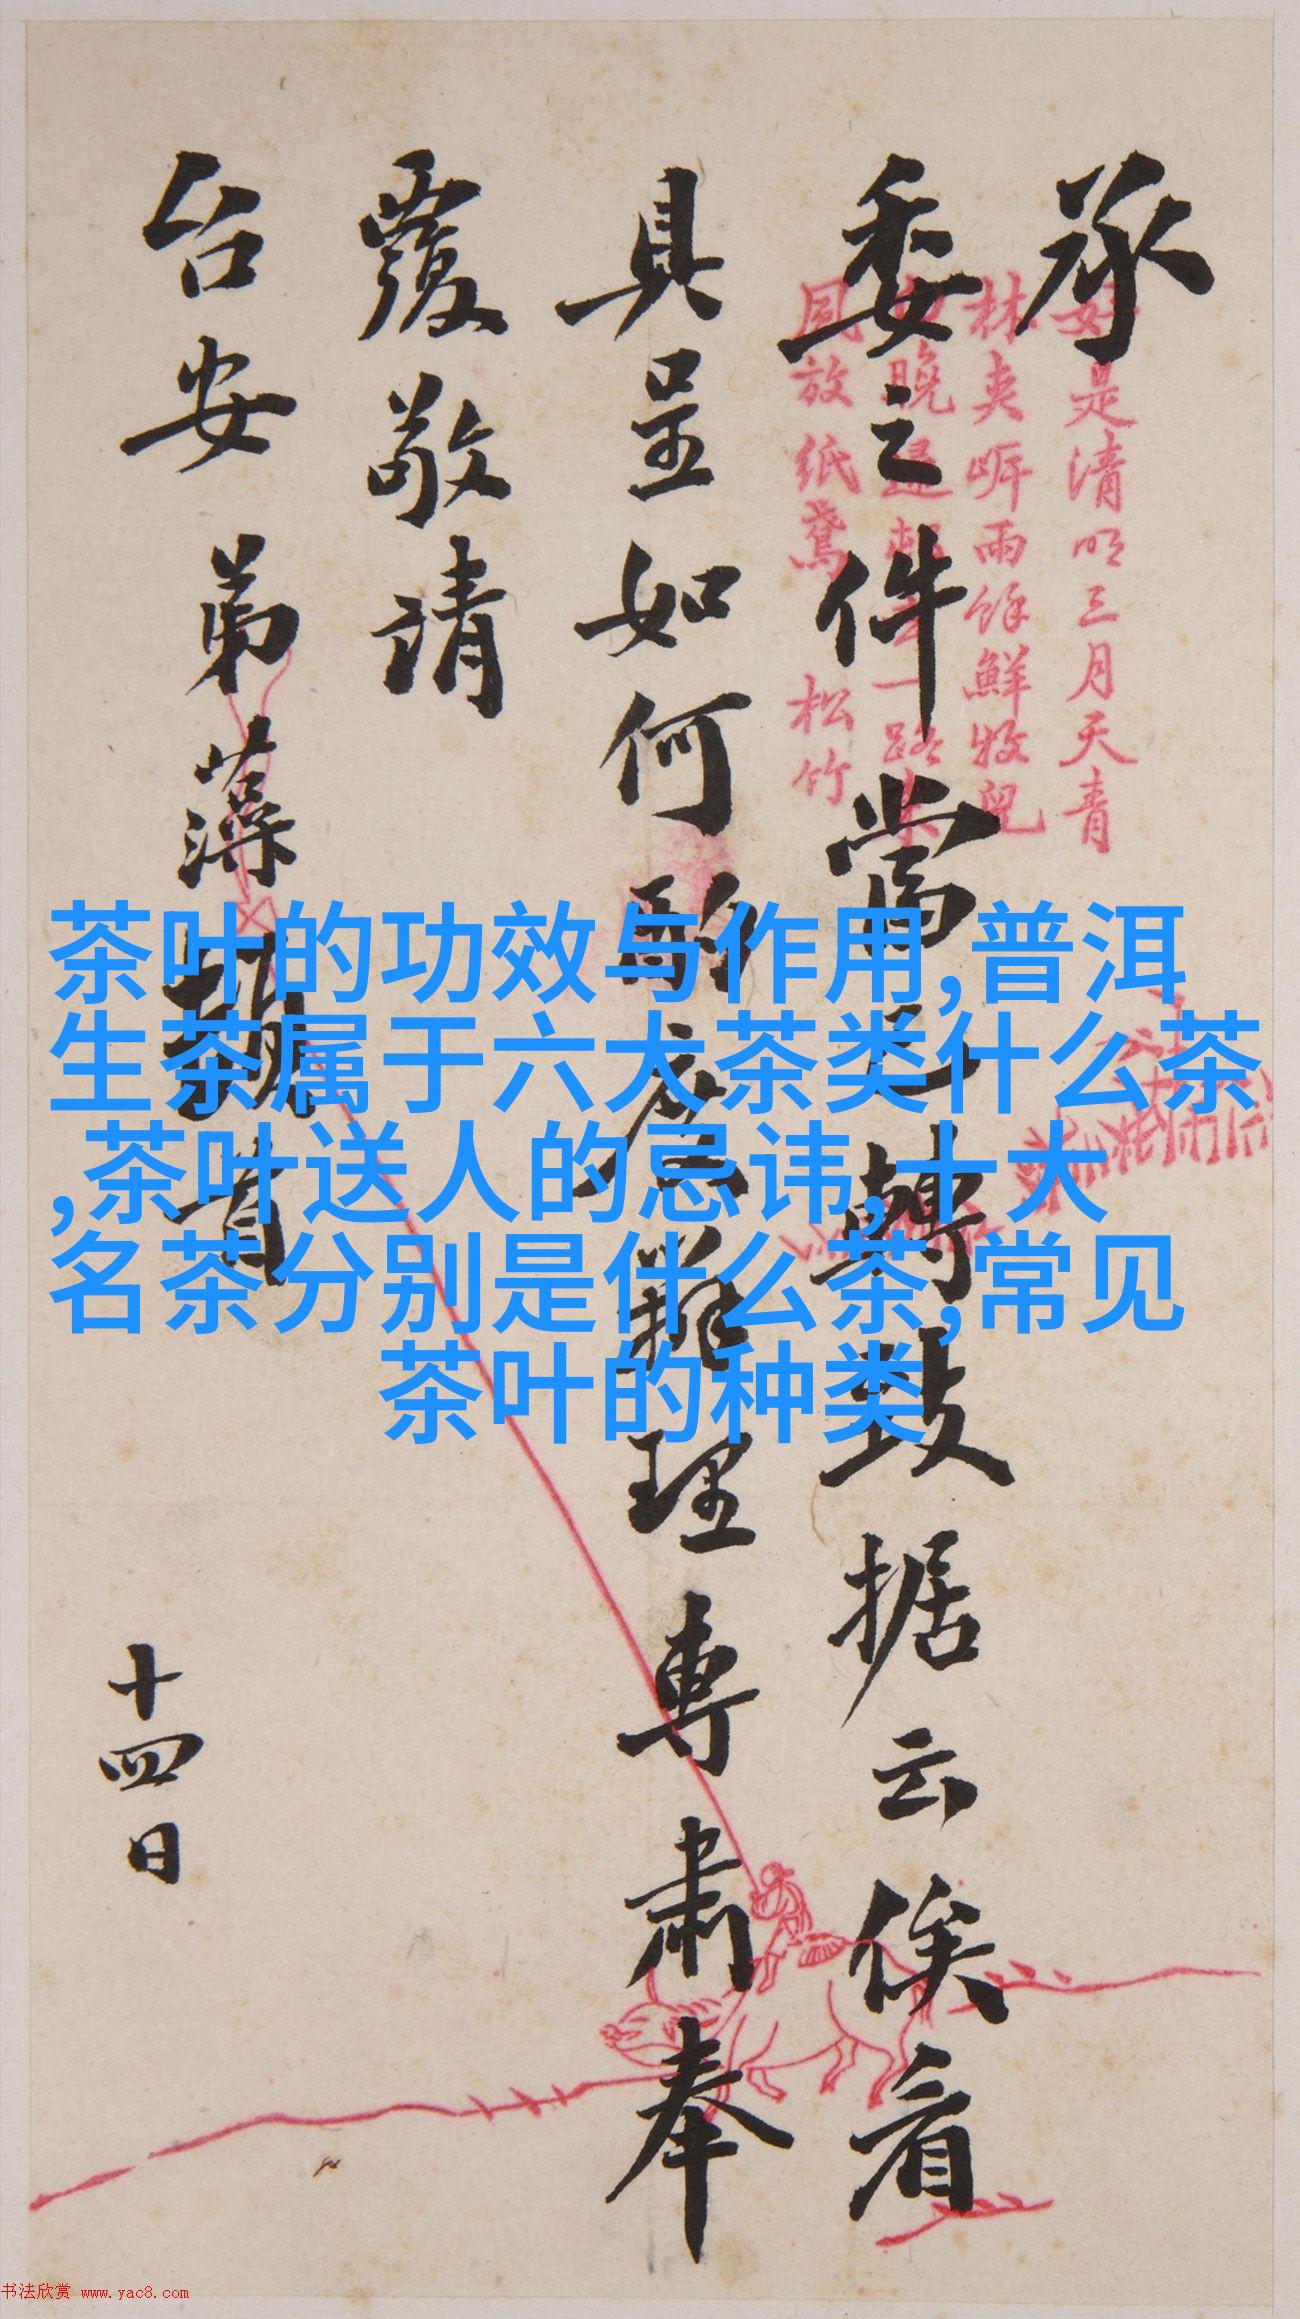 承
委之件當已轉致据云俟看
具呈如何酌应辦理專肅奉
覆敬请
台安 弟藻
首
十四日
好是清明三月天青
林夹
雨餘鮮牧兒
晚
一路
同放纸鸢 松竹
茶叶的功效与作用,普洱
生茶属于六大茶类什么茶
,茶叶送人的忌讳,十大
名茶分别是什么茶,常见
茶叶的种类
书法欣赏 www.yac8.com